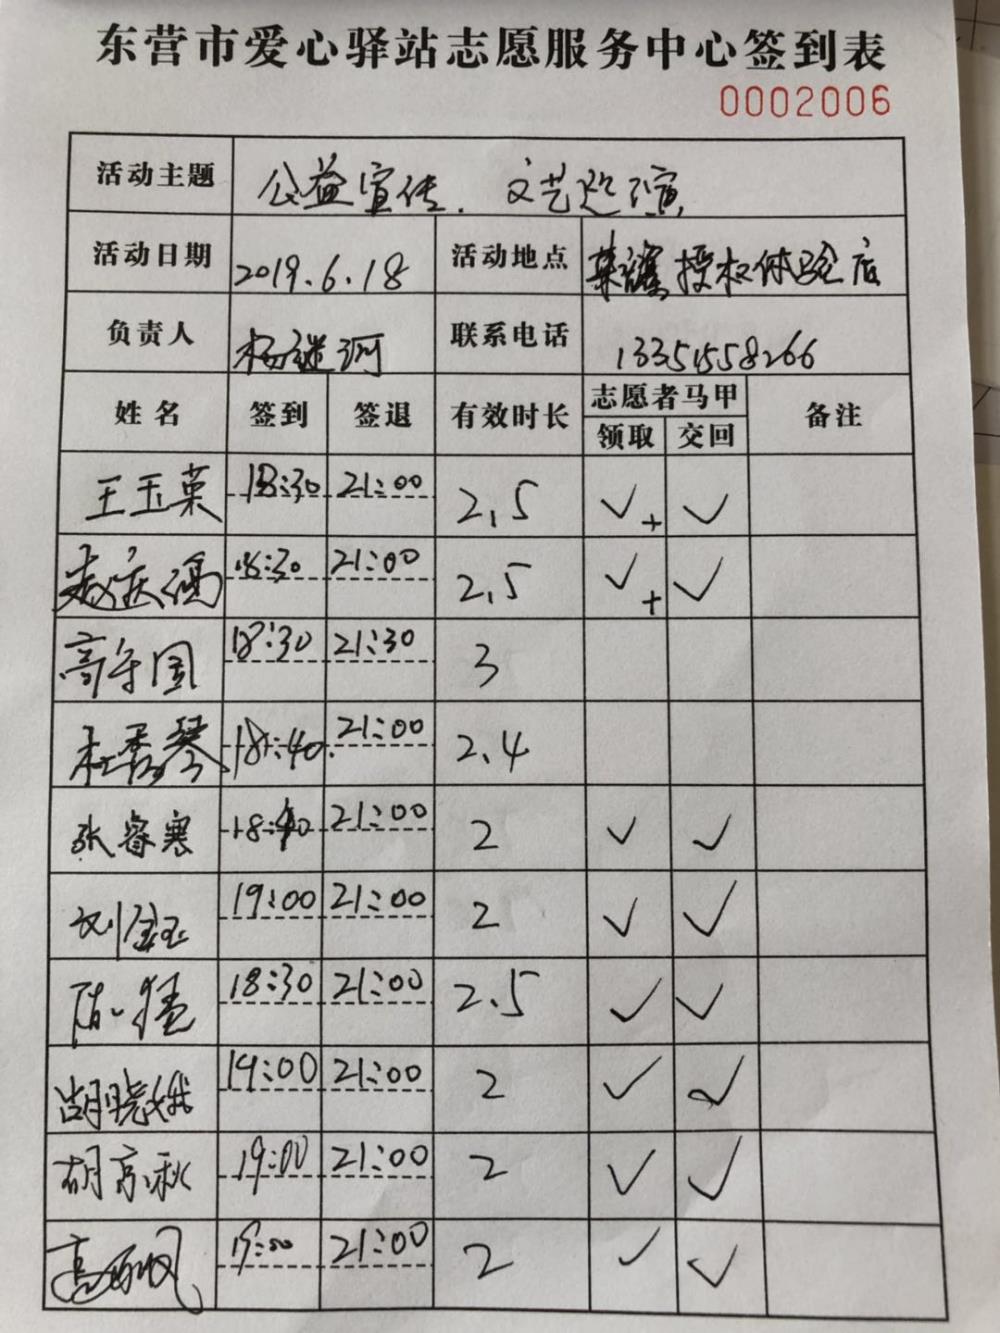 东营市爱心驿站志愿服务中心签到表
0002006
活动主题 公益宣传. 文艺巡演
活动日期 2019.6.18 活动地点 授权体验店
负责人 杨继河 联系电话 13351558266
姓名 签到 签退 有效时长 志愿者马甲 备注
领取 交回
王玉英 18:30 21:00 2.5 ✓+ ✓
18:30 21:00 2.5 ✓+ ✓
高守国 18:30 21:30 3
杜秀琴 18:40 21:00 2.4
张睿寒 18:40 21:00 2 ✓ ✓
刘金玉 19:00 21:00 2 ✓ ✓
18:30 21:00 2.5 ✓ ✓
胡晓娥 19:00 21:00 2 ✓ ✓
胡京秋 19:00 21:00 2 ✓ ✓
19:00 21:00 2 ✓ ✓